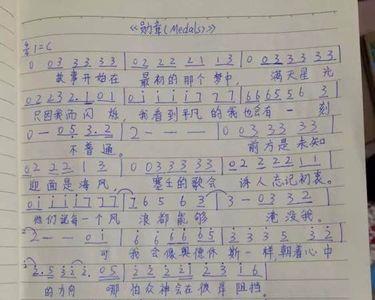 《勋章(Medals)》
1=C
0 03 33 33 | 02 22 21 13 | 0 03 33 33
故事开始在 最初的那个梦中, 满天星光
02232.101 | 0i i i i 7 7 7 | 666556 3
只因我而闪烁, 我看到平凡的我也会有一刻
0 — 05 3.2 | 2 — — — | 0 03 33 33
不普通。 前方是未知
02 22 21 3 | 0 03 33 33 | 02 22 21 1
迎面是海风, 塞壬的歌会 诱人忘记初衷。
0i i i i 7 7 7 | 7 6 5 6 3 | 3 — 03 3 2
他们说每一个风 浪都能够 淹没我。
2 — — 0i | i i 6 6 6 5 | 3 3 3 5 3 2
可 我会像奥德休斯一样,朝着心中
2.5 3 2 2. 05 | 2 2 2 2 2 1 | 2 3 i 6
的方向 哪怕众神会在彼岸阻挡